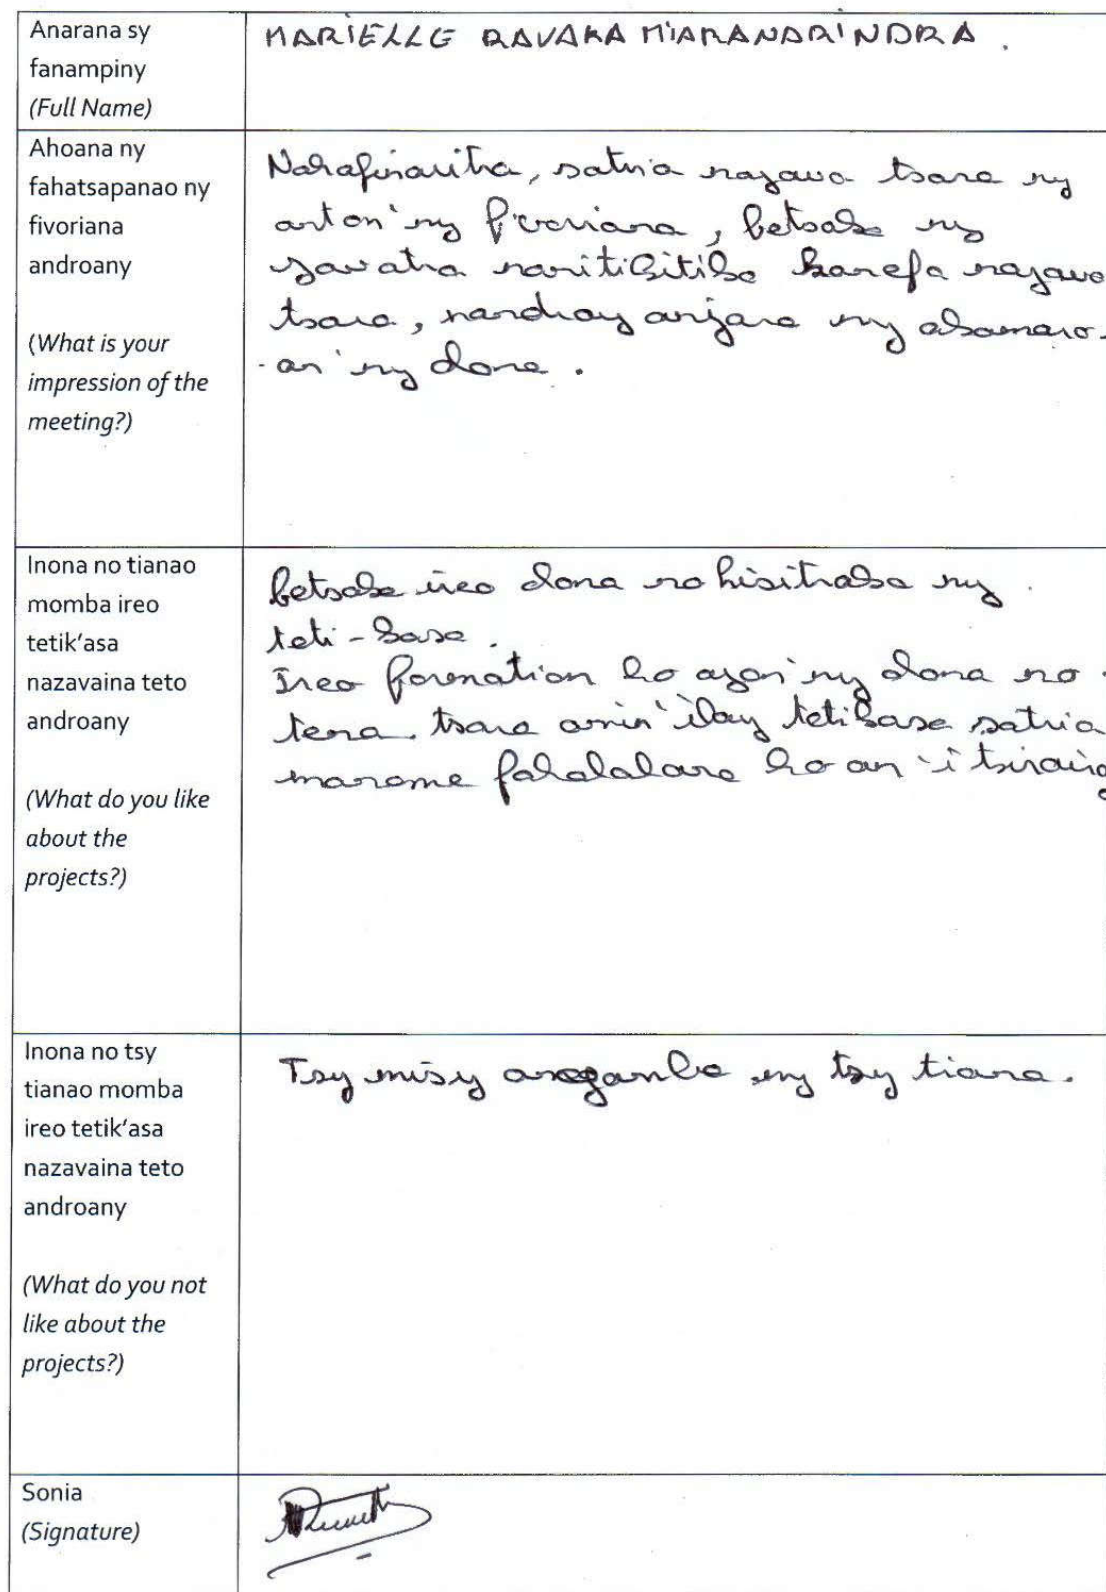 Anarana sy
fanampiny
(Full Name)
MARIELLE RAVAKA MIARANARINDRA.
Ahoana ny
fahatsapanao ny
fivoriana
androany
(What is your
impression of the
meeting?)
Nahafinaritra, satria nazava tsara ny
anton'ny fivoriana, betsaka ny
zavatra nanitikitika kanefa nazava
tsara, nandray anjara ny ankamaro-
-an'ny olona.
Inona no tianao
momba ireo
tetik'asa
nazavaina teto
androany
(What do you like
about the
projects?)
betsaka ireo olona no hisitraka ny
teti-kasa.
Ireo formation ho azon'ny olona no
tena tsara amin'ilay tetikasa satria
manome fahalalana ho an'i tsirairay
Inona no tsy
tianao momba
ireo tetik'asa
nazavaina teto
androany
(What do you not
like about the
projects?)
Tsy misy ny tsy tiana.
Sonia
(Signature)